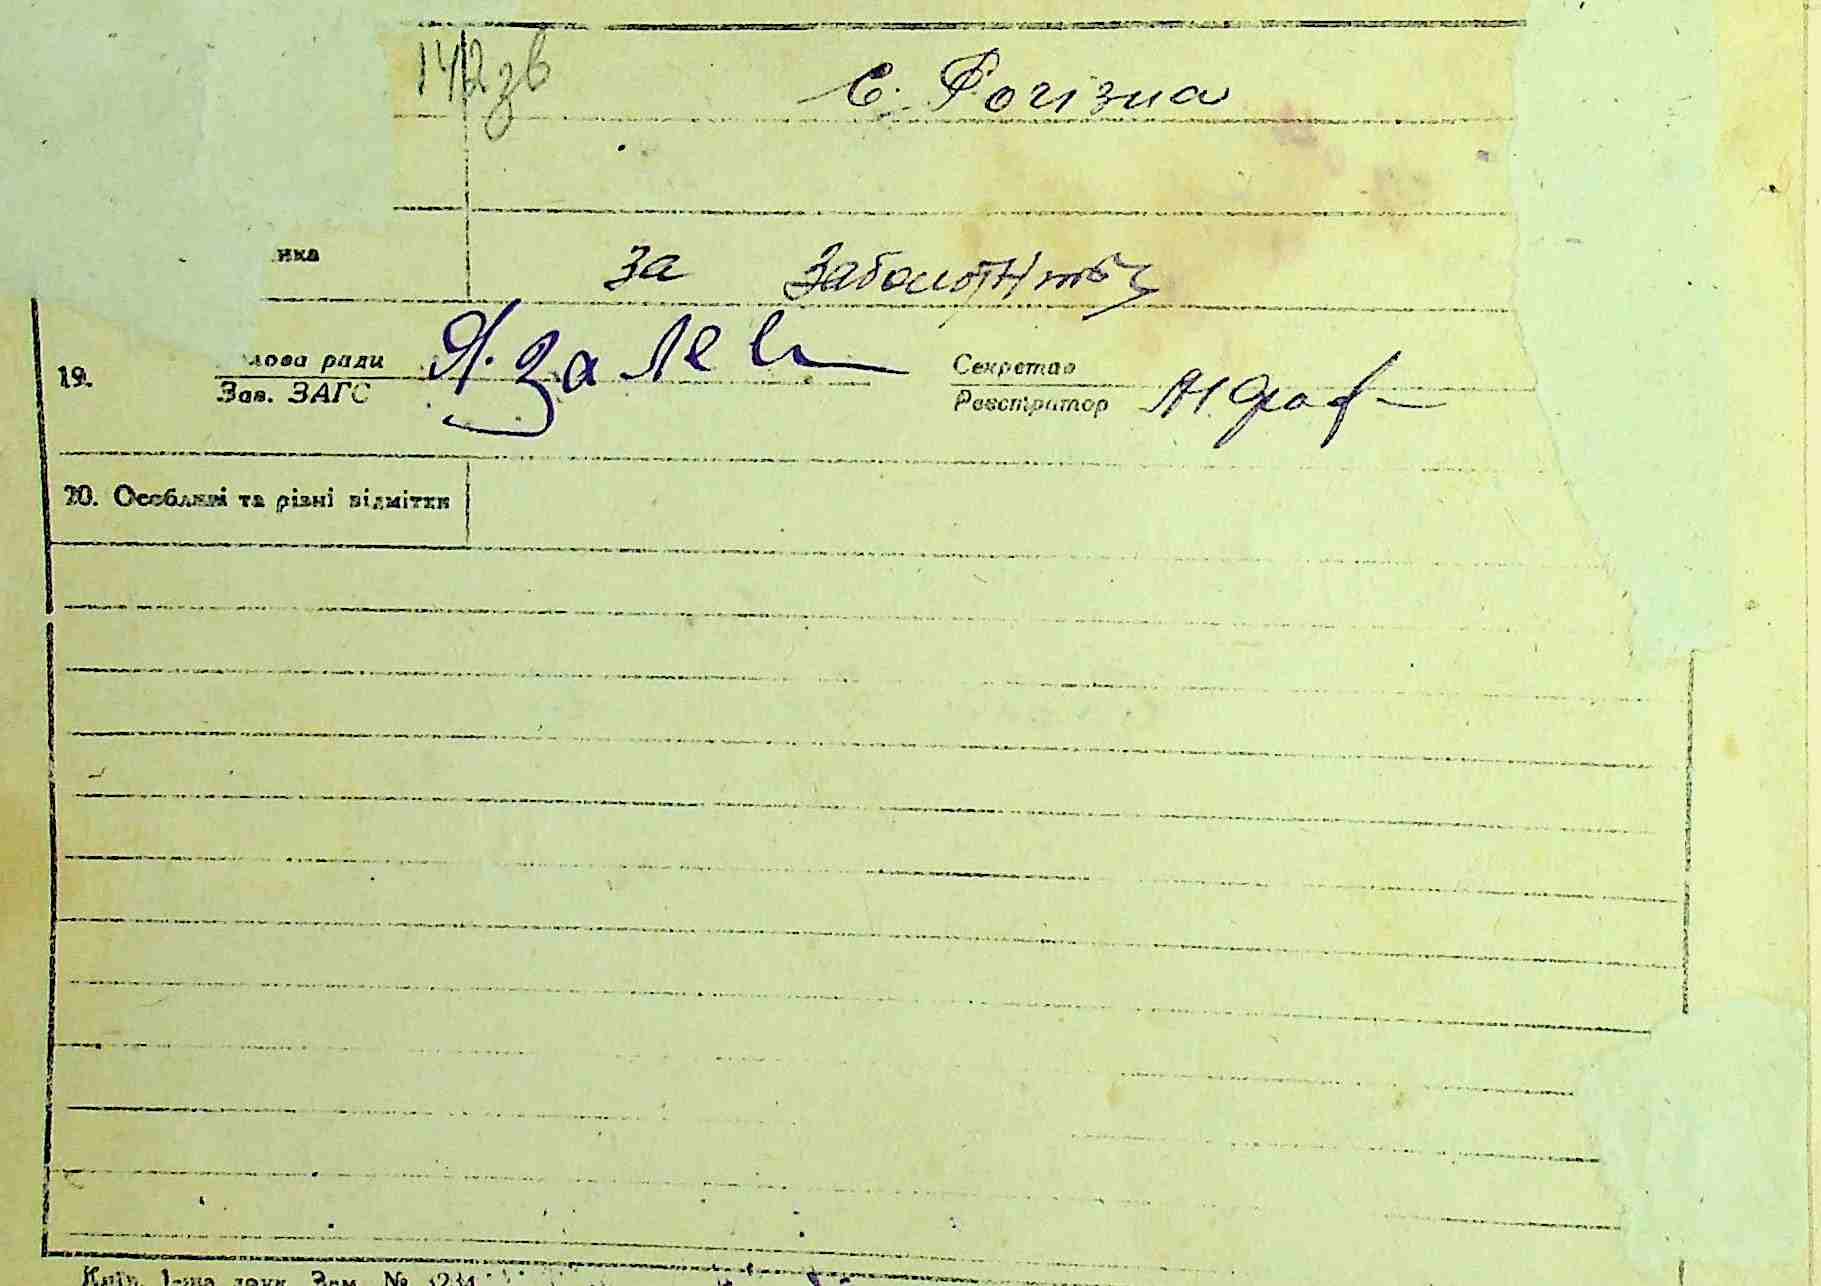 142зв
с. Рогізна
ника
за
лова ради
Зав. ЗАГС
Секретар
Реєстратор
19.
20. Особливі та різні відмітки
Київ, 1-ша друк. Зам. № 3234